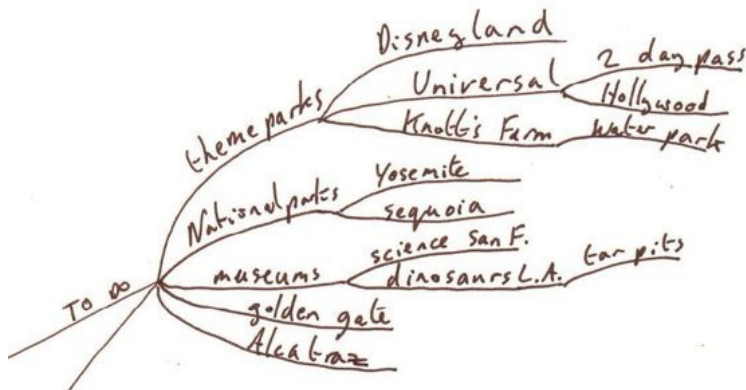 Disneyland
theme parks
Universal
2 day pass
Hollywood
Knott's Farm
Water park
National parks
Yosemite
sequoia
museums
science San F.
dinosaurs L.A.
tar pits
TO DO
golden gate
Alcatraz